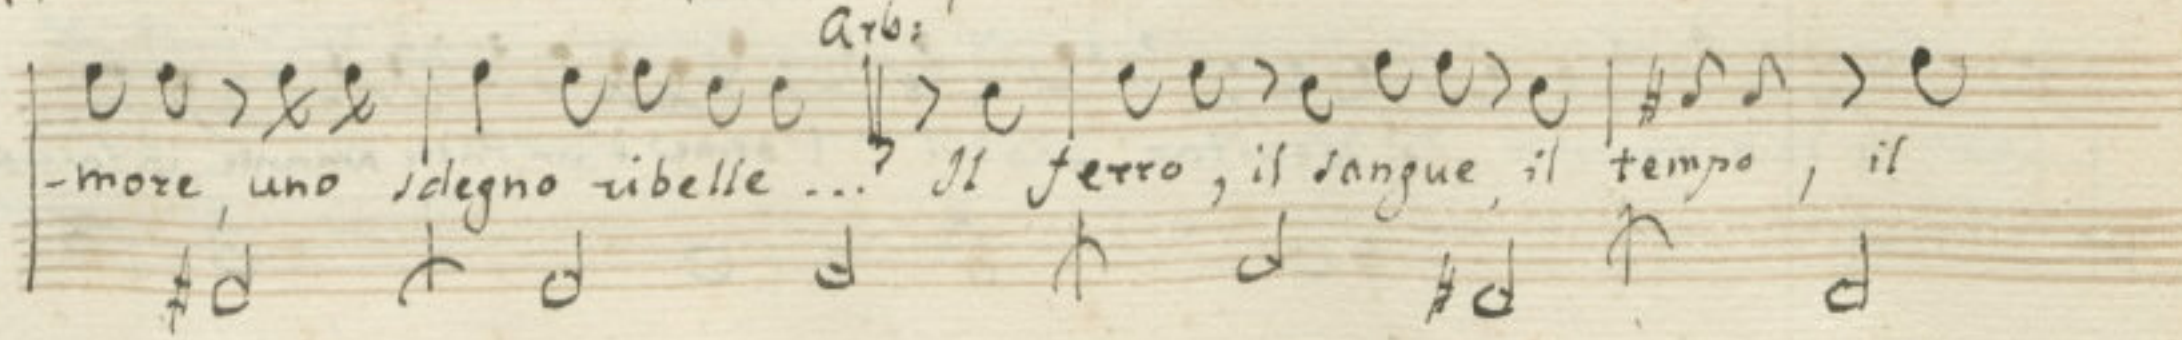 Arb:
-more, uno sdegno ribelle ...? Il ferro, il sangue, il tempo, il